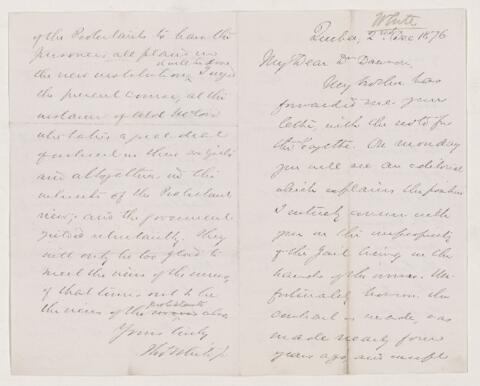 White
Quebec, 2nd Dec 1876
My Dear Dr Dawson,
My brother has
forwarded me your
letter, with the note for
the Gazette. On Monday
you will see an editorial
which explains the position
I entirely concur with
you in the impropriety
of the Gaol being in the
hands of the nuns. Un-
fortunately however the
contract is made, was
made nearly four
years ago, and except
of the Protestants to have the
prisoners all placed in
the new institution, I urged
the present course, at the
instance of
who takes a great deal
of interest in these
and altogether in the
interests of the Protestant
view; and the government
yielded reluctantly. They
will only be too glood to
meet the views of the
if that turns out to be
the views of the Protestants also
Yours truly
Thos White Jr